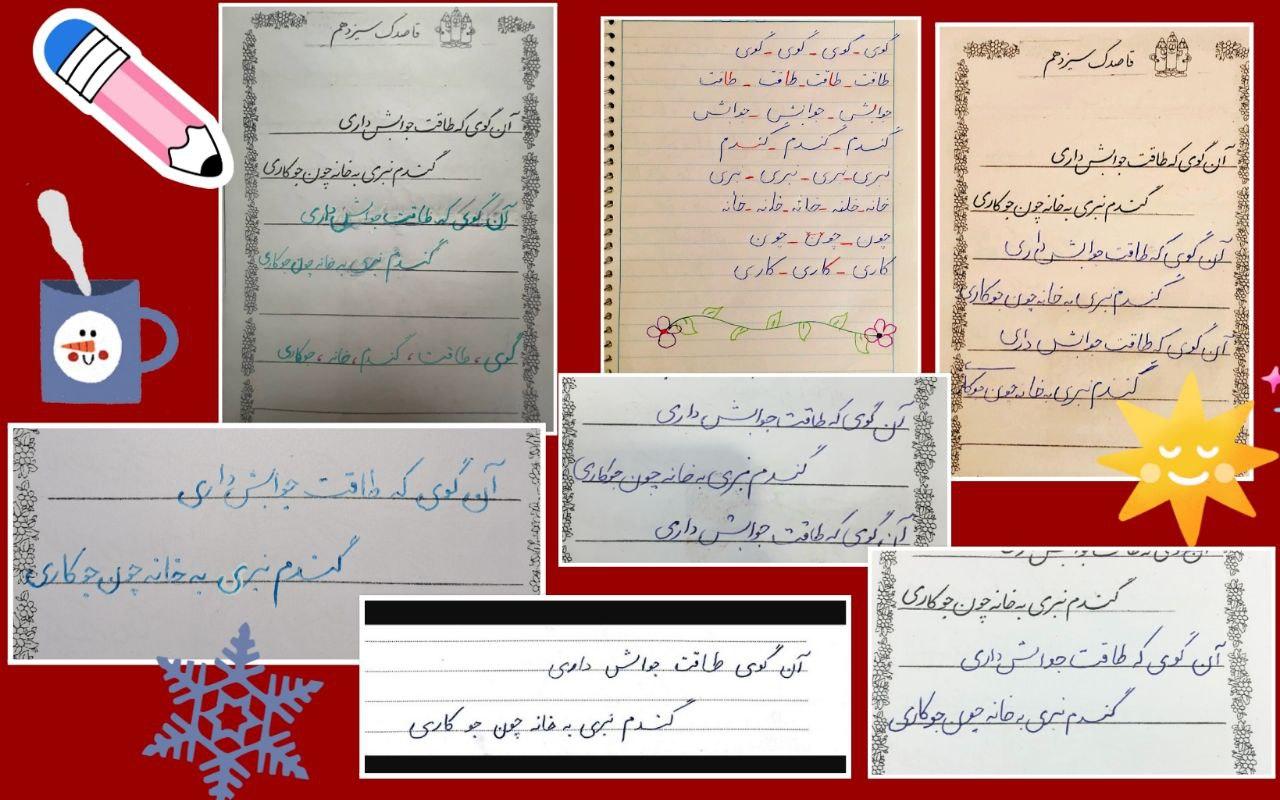 قاصدک سیزدهم
آن گوی که طاقت جوابش داری
گندم نبری به خانه چون جو کاری
آن گوی که طاقت جوابش داری
گندم نبری به خانه چون جو کاری
گوی، طاقت، گندم، خانه، جوکاری
گوی - گوی - گوی - گوی
طاقت - طاقت - طاقت - طاقت
جوابش - جوابش - جوابش
گندم - گندم - گندم
نبری - نبری - نبری - نبری
خانه - خانه - خانه - خانه - خانه
چون - چون - چون
کاری - کاری - کاری
قاصدک سیزدهم
آن گوی که طاقت جوابش داری
گندم نبری به خانه چون جو کاری
آن گوی که طاقت جوابش داری
گندم نبری به خانه چون جو کاری
آن گوی که طاقت جوابش داری
گندم نبری به خانه چون جوکا
آن گوی که طاقت جوابش داری
گندم نبری به خانه چون جو کاری
آن گوی که طاقت جوابش داری
گندم نبری به خانه چون جوکاری
آن گوی که طاقت جوابش داری
آن گوی طاقت جوابش داری
گندم نبری به خانه چون جو کاری
گندم نبری به خانه چون جو کاری
آن گوی که طاقت جوابش داری
گندم نبری به خانه چون جو کاری